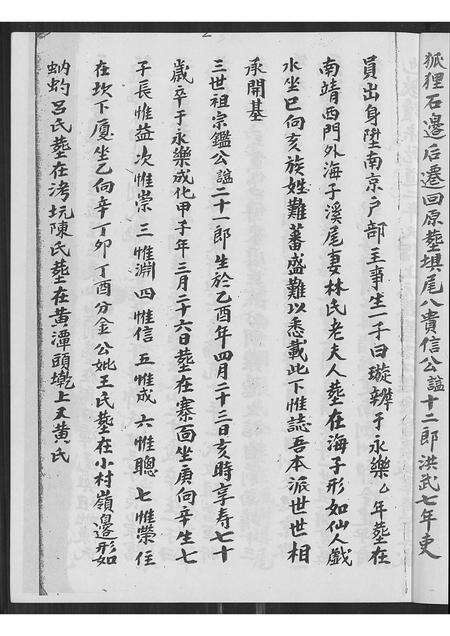 狐狸石邊后遷回原塟埧尾八貴信公諡十二郎洪武七年吏
員出身陞南京户部主事生一子曰璇辭于永樂乙年塟在
南靖西門外海子溪尾妻林氏老夫人塟在海子形如仙人戲
水坐巳向亥族姓難蕃盛難以悉載此下惟誌吾本派世世相
承開基
三世祖宗鑑公諡二十一郎生於乙酉年四月二十三日亥時享寿七十
歲卒于永樂成化甲子年三月二十六日塟在寨面坐庚向辛生七
子長惟益次惟崇三惟淵四惟信五惟成六惟聰七惟榮住
在坎下厦坐乙向辛丁卯丁酉分金公妣王氏塟在小村嶺邊形如
蚋蚼呂氏塟在湾坑陳氏塟在黄潭頭墘上又黄氏